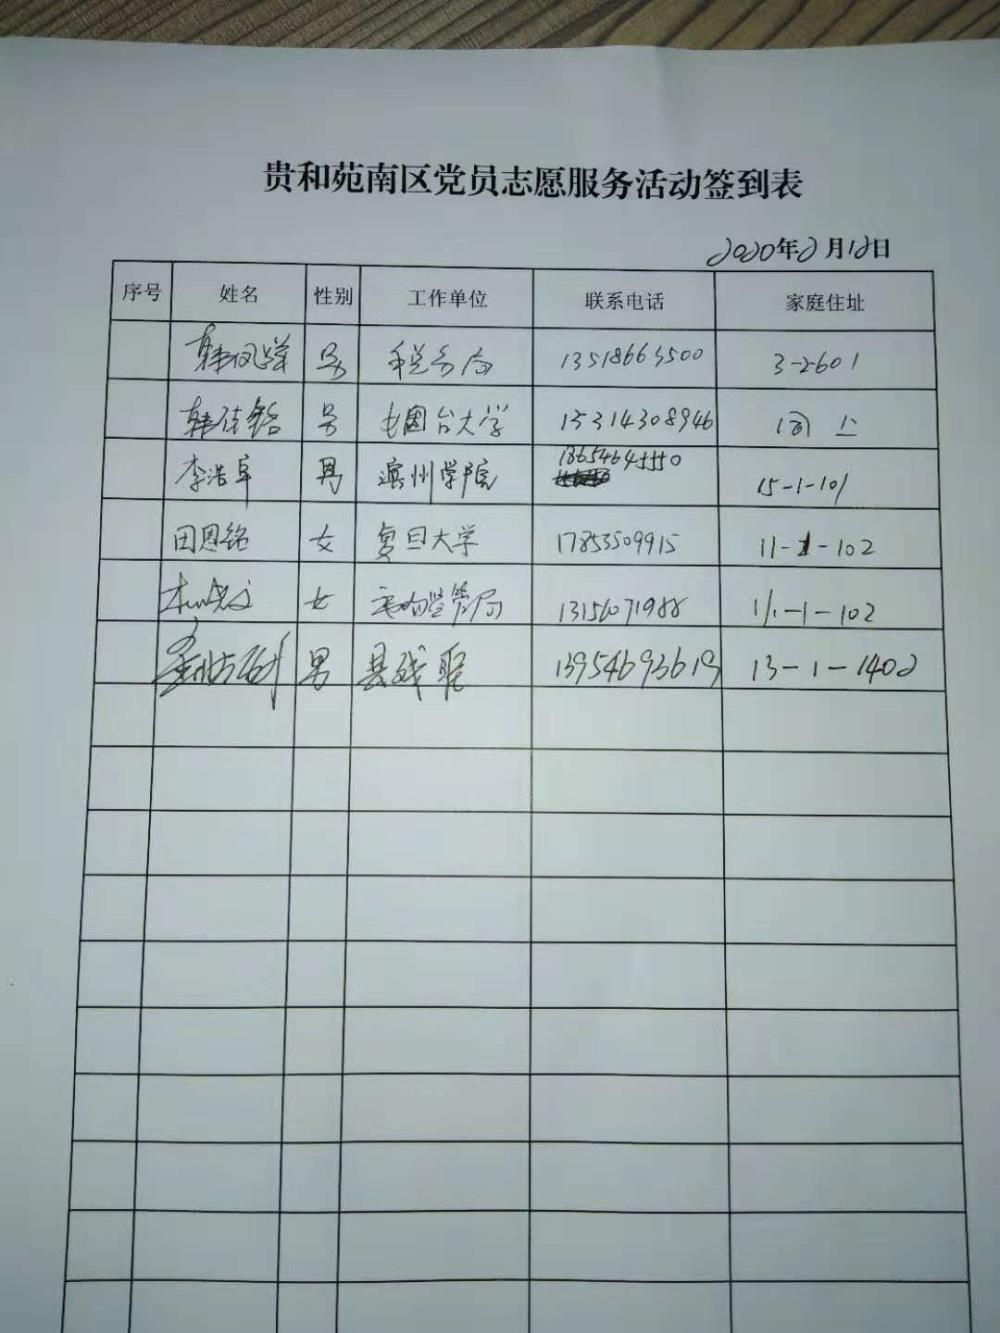 贵和苑南区党员志愿服务活动签到表
2020年2月12日
序号 姓名 性别 工作单位 联系电话 家庭住址
韩凤祥 男 税务局 13518663500 3-2-601
韩佳铭 男 烟台大学 15314308946 同上
李浩卓 男 滨州学院 18654645550 15-1-101
田恩铭 女 复旦大学 17853509915 11-1-102
女 管局 13156071988 11-1-102
男 县残联 13954693619 13-1-1402